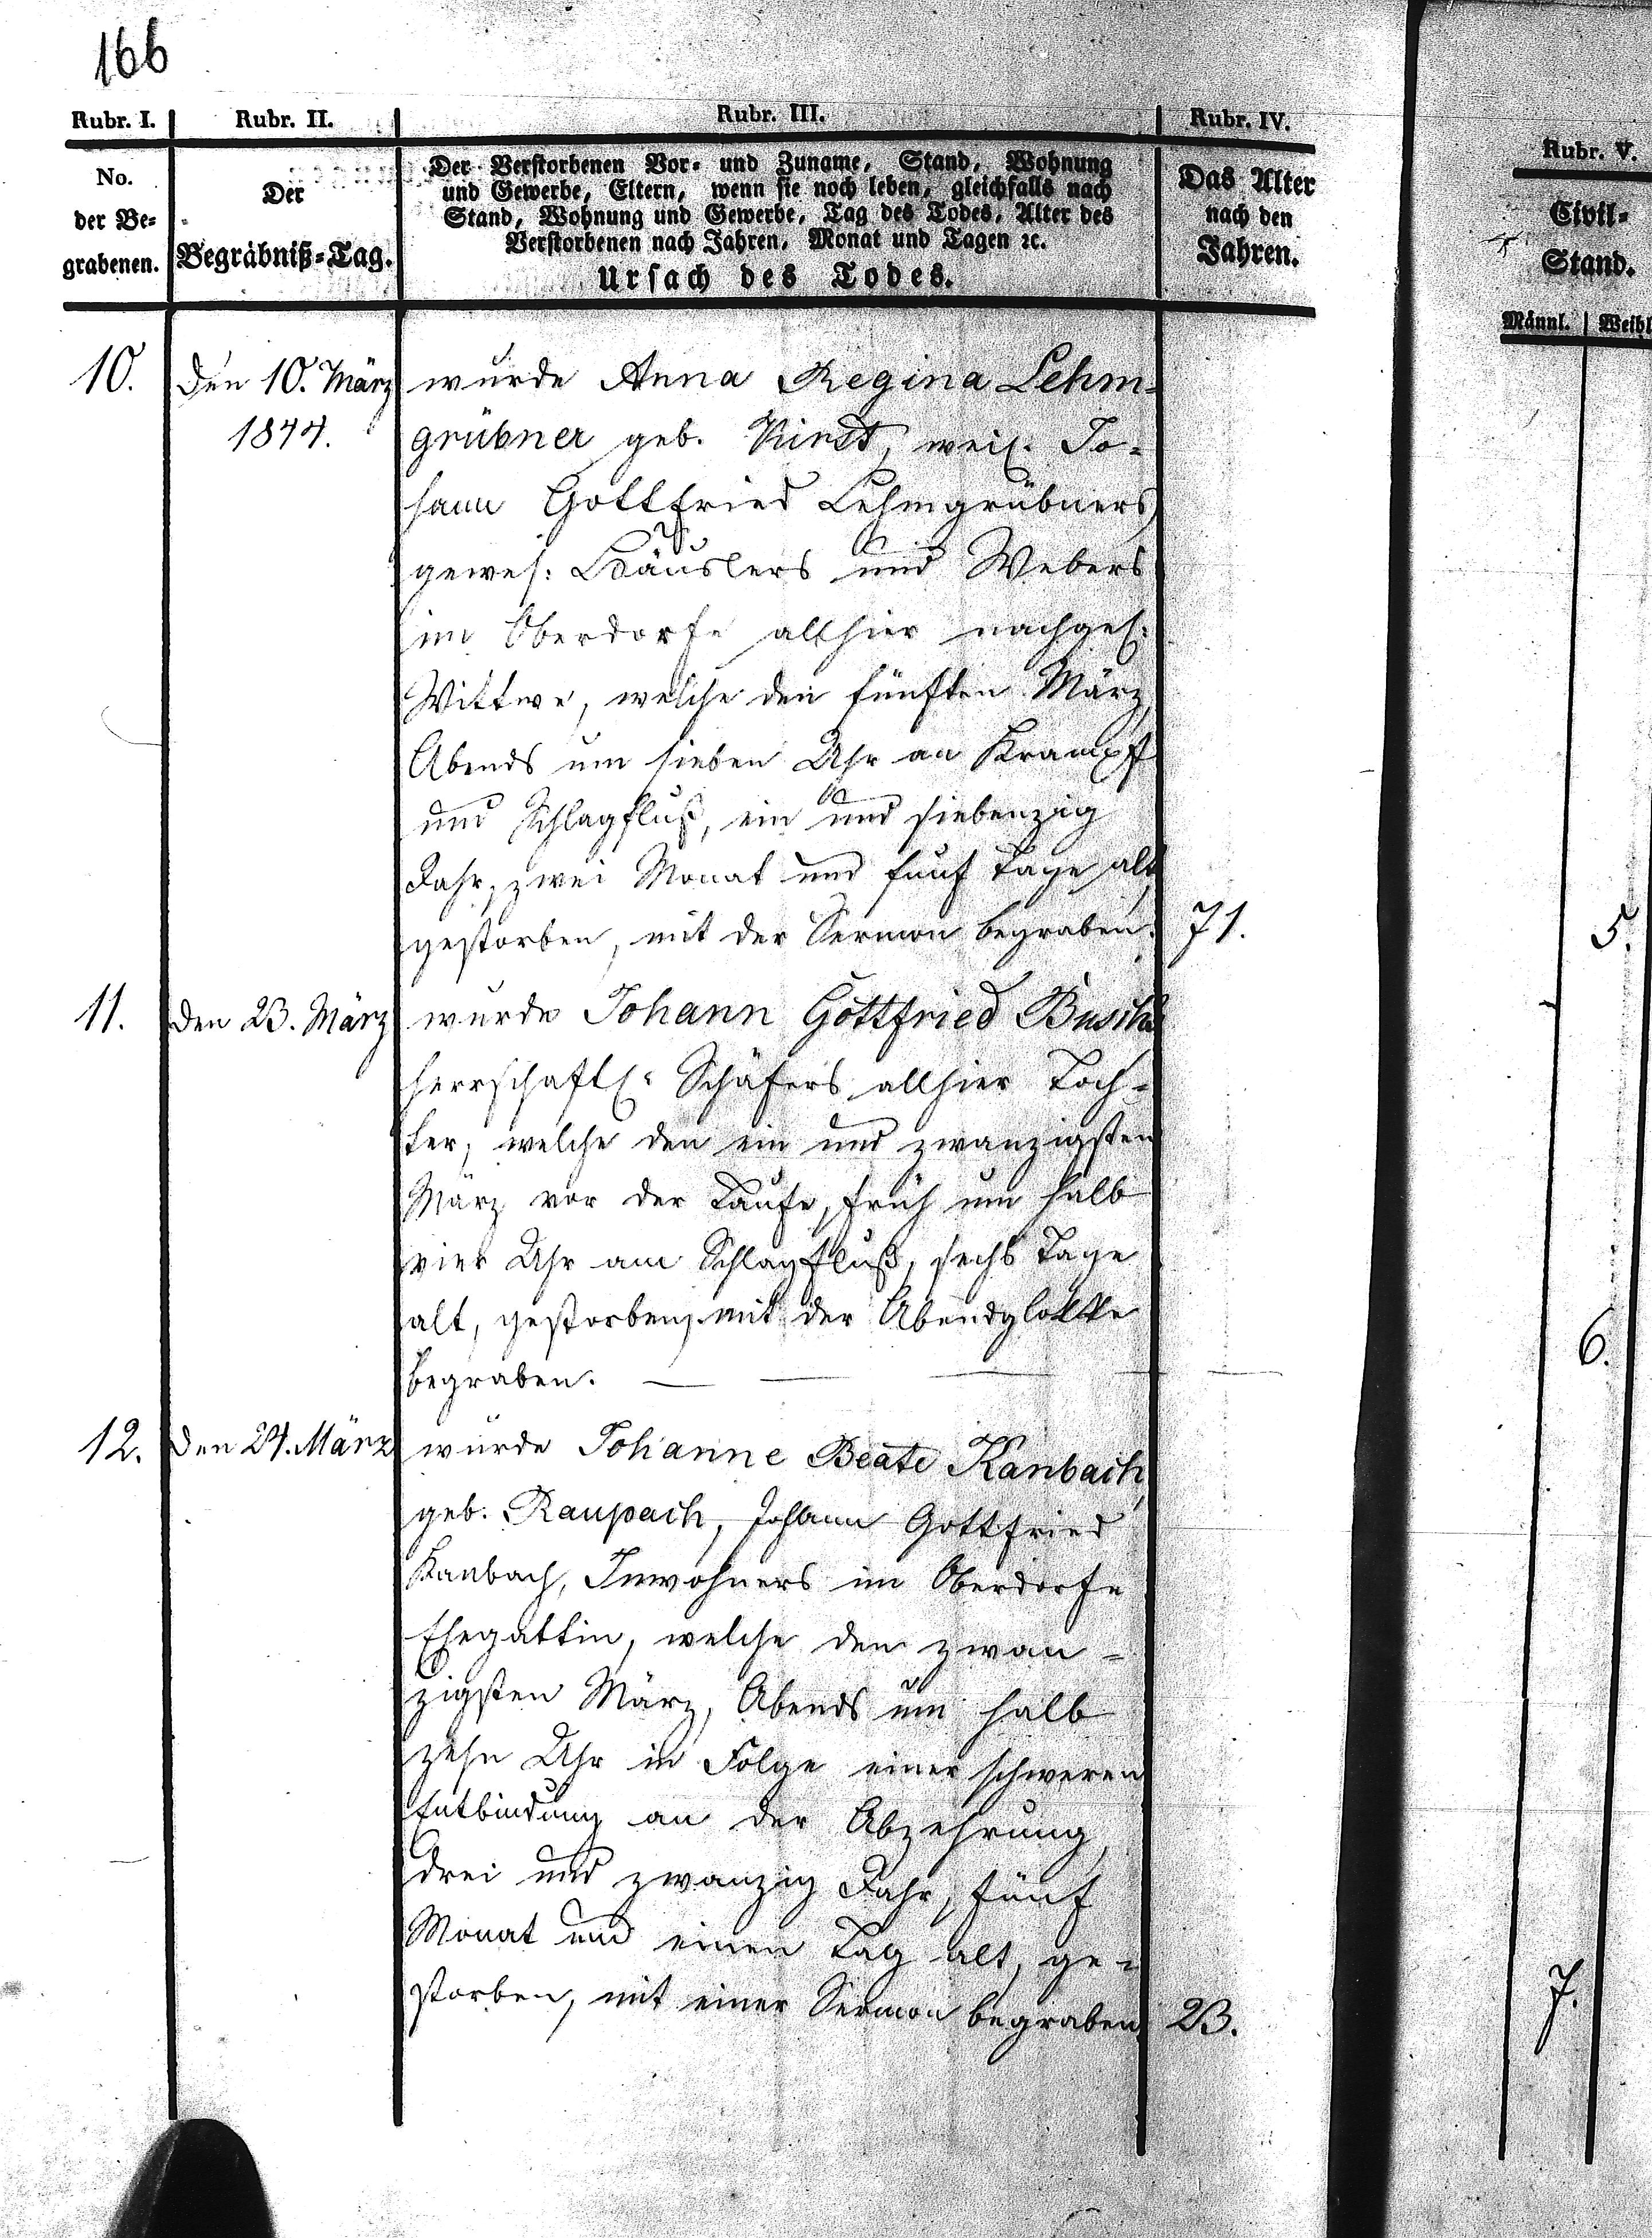 166
Rubr. I.
Rubr. II.
Rubr. III.
Rubr. IV.
Rubr. V.
No.
der Be-
grabenen.
Der
Begräbniß-Tag.
Der Verstorbenen Vor- und Zuname, Stand, Wohnung
und Gewerbe, Eltern, wenn sie noch leben, gleichfalls nach
Stand, Wohnung und Gewerbe, Tag des Todes, Alter des
Verstorbenen nach Jahren, Monat und Tagen ꝛc.
Ursach des Todes.
Das Alter
nach den
Jahren.
Civil-
Stand.
Männl. Weibl
10. den 10. März wurde Anna Regina Lehm-
1844. grübner geb. Kirst, weil. Jo-
hann Gottfried Lehmgrübners
gewes: Häuslers und Webers
im Oberdorfe allhier nachgel:
Wittwe, welche den fünften März,
Abends um sieben Uhr an Krampf
und Schlagfluß, ein und siebenzig
Jahr, zwei Monat und fünf Tage alt,
gestorben, mit der Sermon begraben. 71. 5.
11. den 23. März wurde Johann Gottfried Buschs
herrschaftl: Schäfers allhier Toch-
ter, welche den ein und zwanzigsten
März vor der Taufe, früh um halb
vier Uhr am Schlagfluß, sechs Tage
alt, gestorben, mit der Abendglocke
begraben. 6.
12. den 24. März wurde Johanne Beate Kanbach,
geb. Raupach, Johann Gottfried
Kanbach, Inwohners im Oberdorfe
Ehegattin, welche den zwan-
zigsten März, Abends um halb
zehn Uhr in Folge einer schweren
Entbindung an der Abzehrung,
drei und zwanzig Jahr, fünf
Monat und einen Tag alt, ge-
storben, mit einer Sermon begraben. 23. 7.